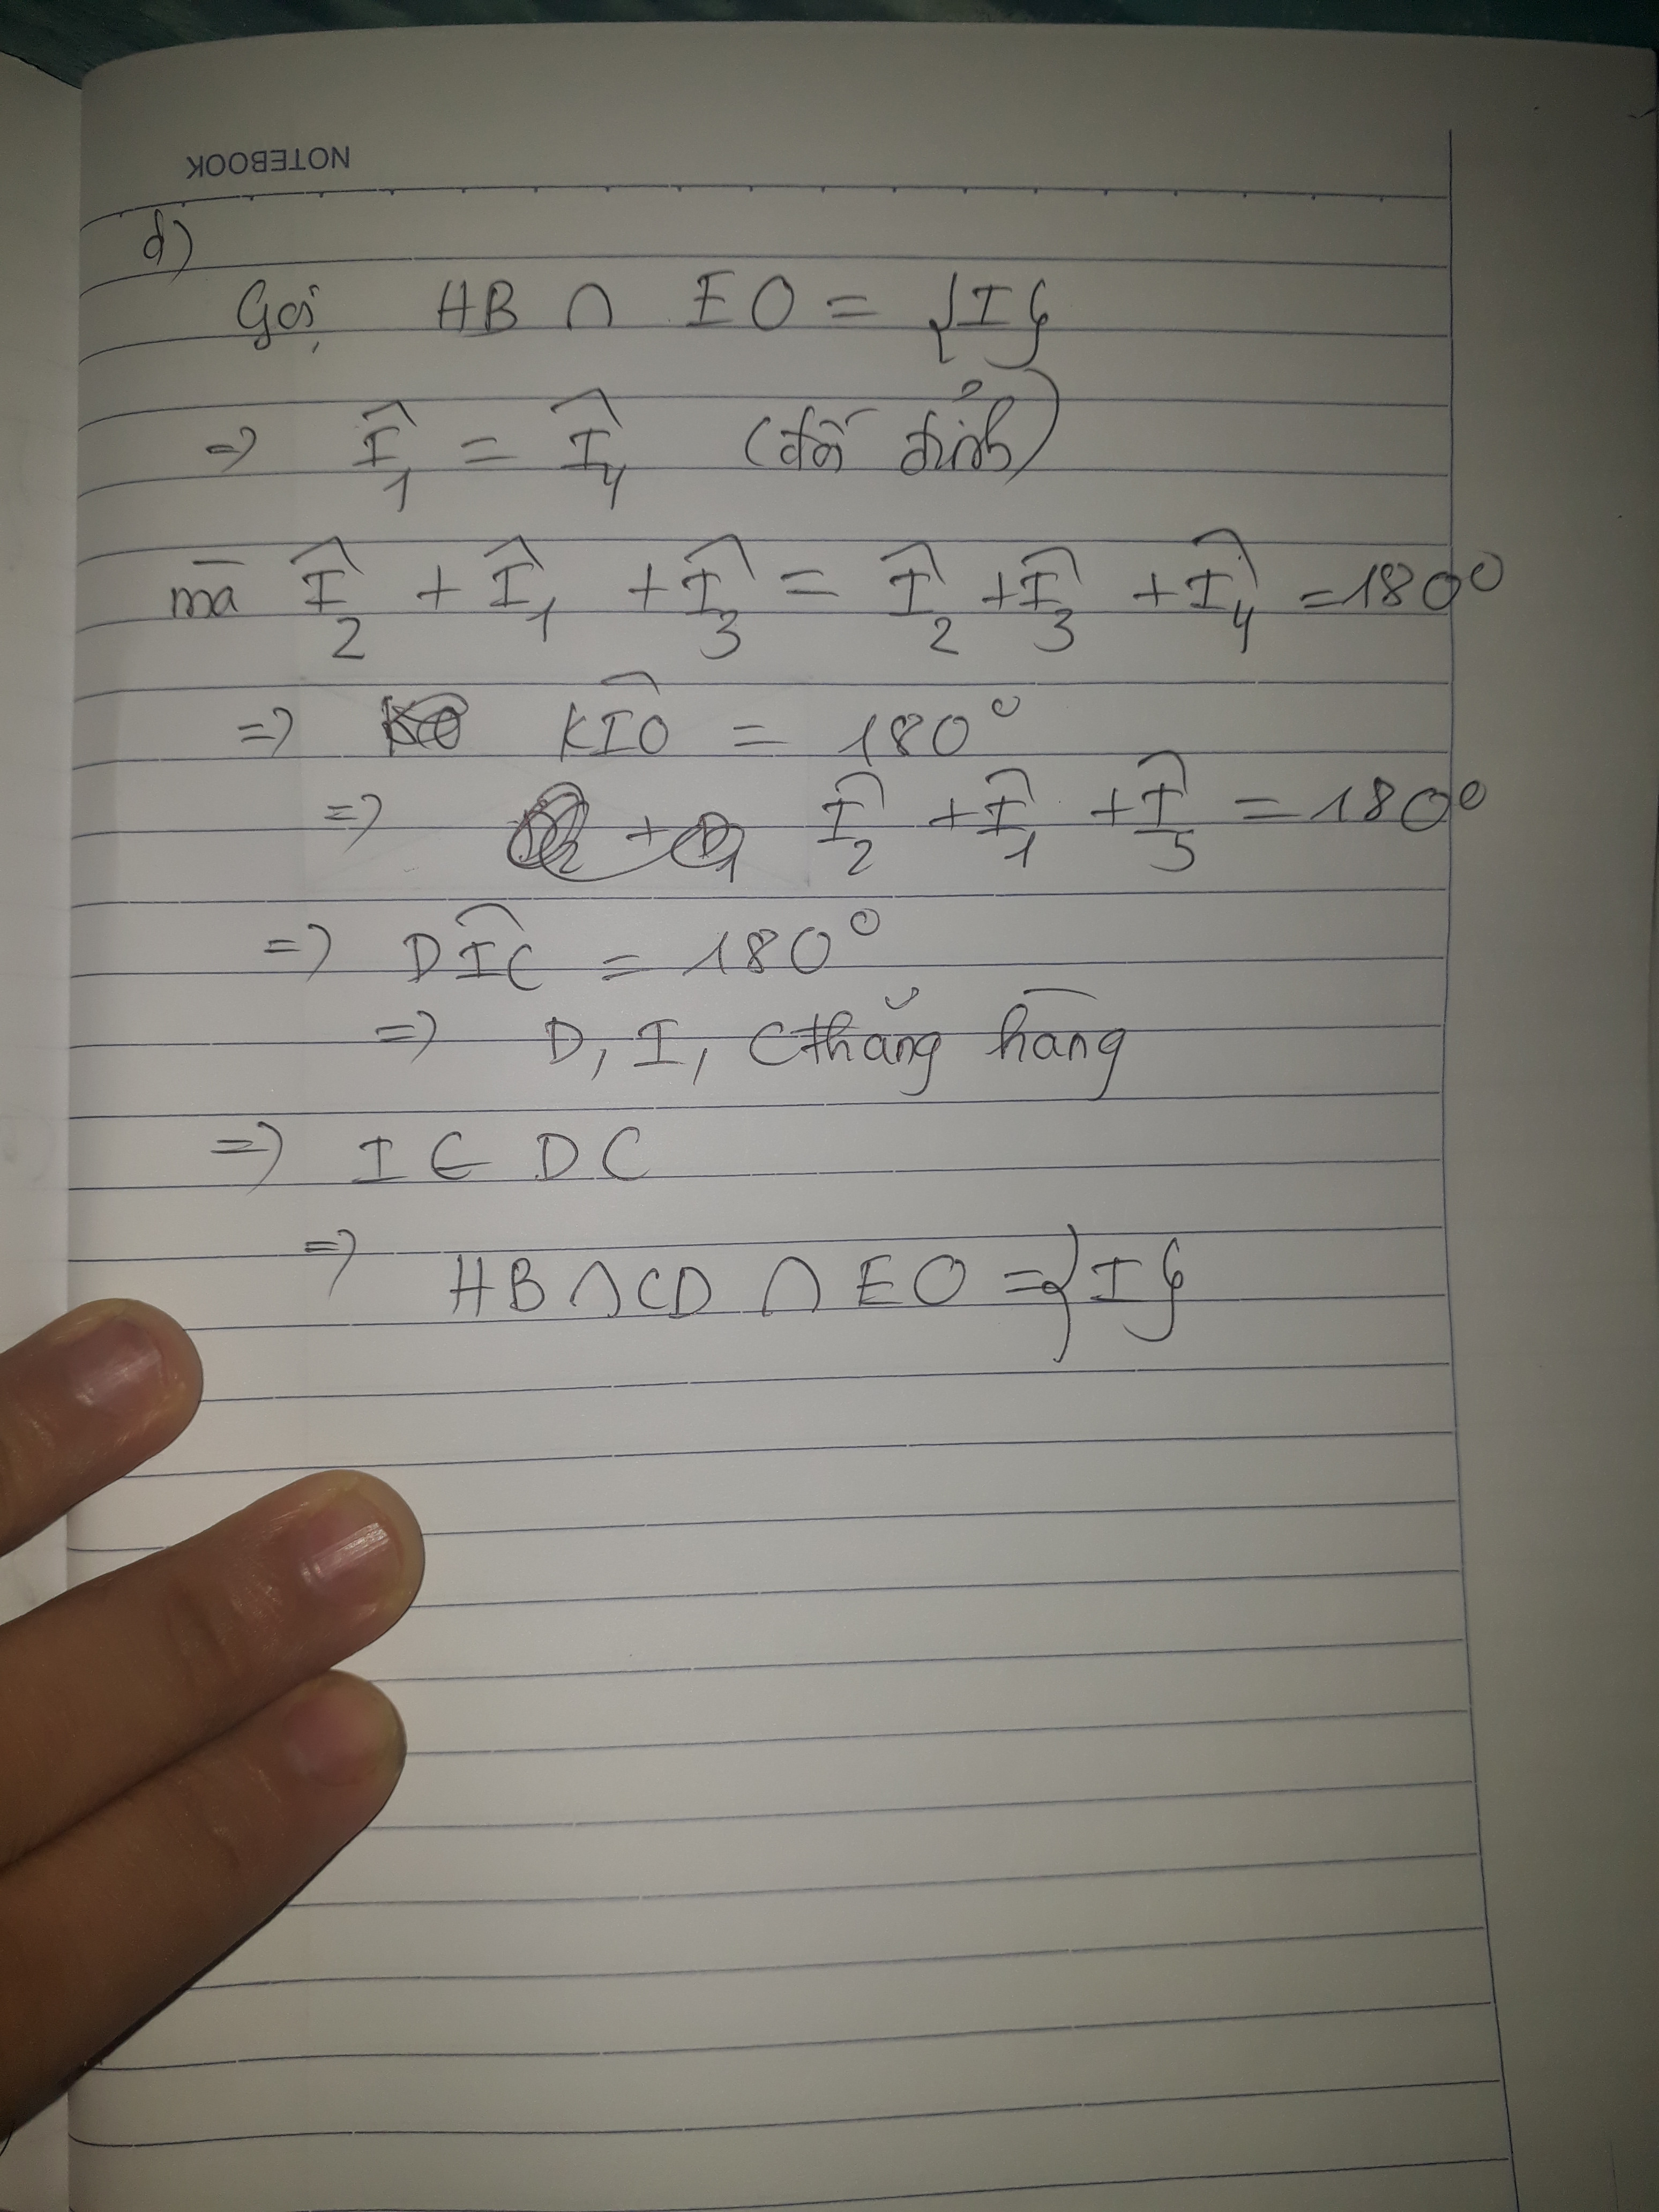 NOTEBOOK
d)
Gọi HB ∩ EO = {I}
=> Î₁ = Î₄ (đối đỉnh)
mà Î₂ + Î₁ + Î₃ = Î₂ + Î₃ + Î₄ = 180⁰
=> KÎO = 180⁰
=> Î₂ + Î₁ + Î₅ = 180⁰
=> DÎC = 180⁰
=> D, I, C thẳng hàng
=> I ∈ DC
=> HB ∩ CD ∩ EO = {I}